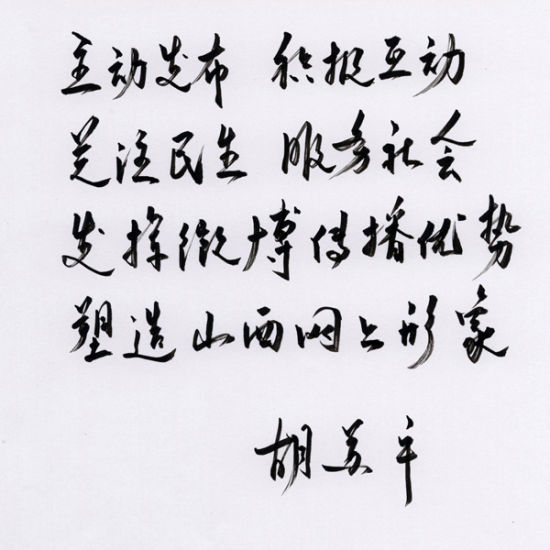 主动发布 积极互动
关注民生 服务社会
发挥微博传播优势
塑造山西网上形象
胡苏平